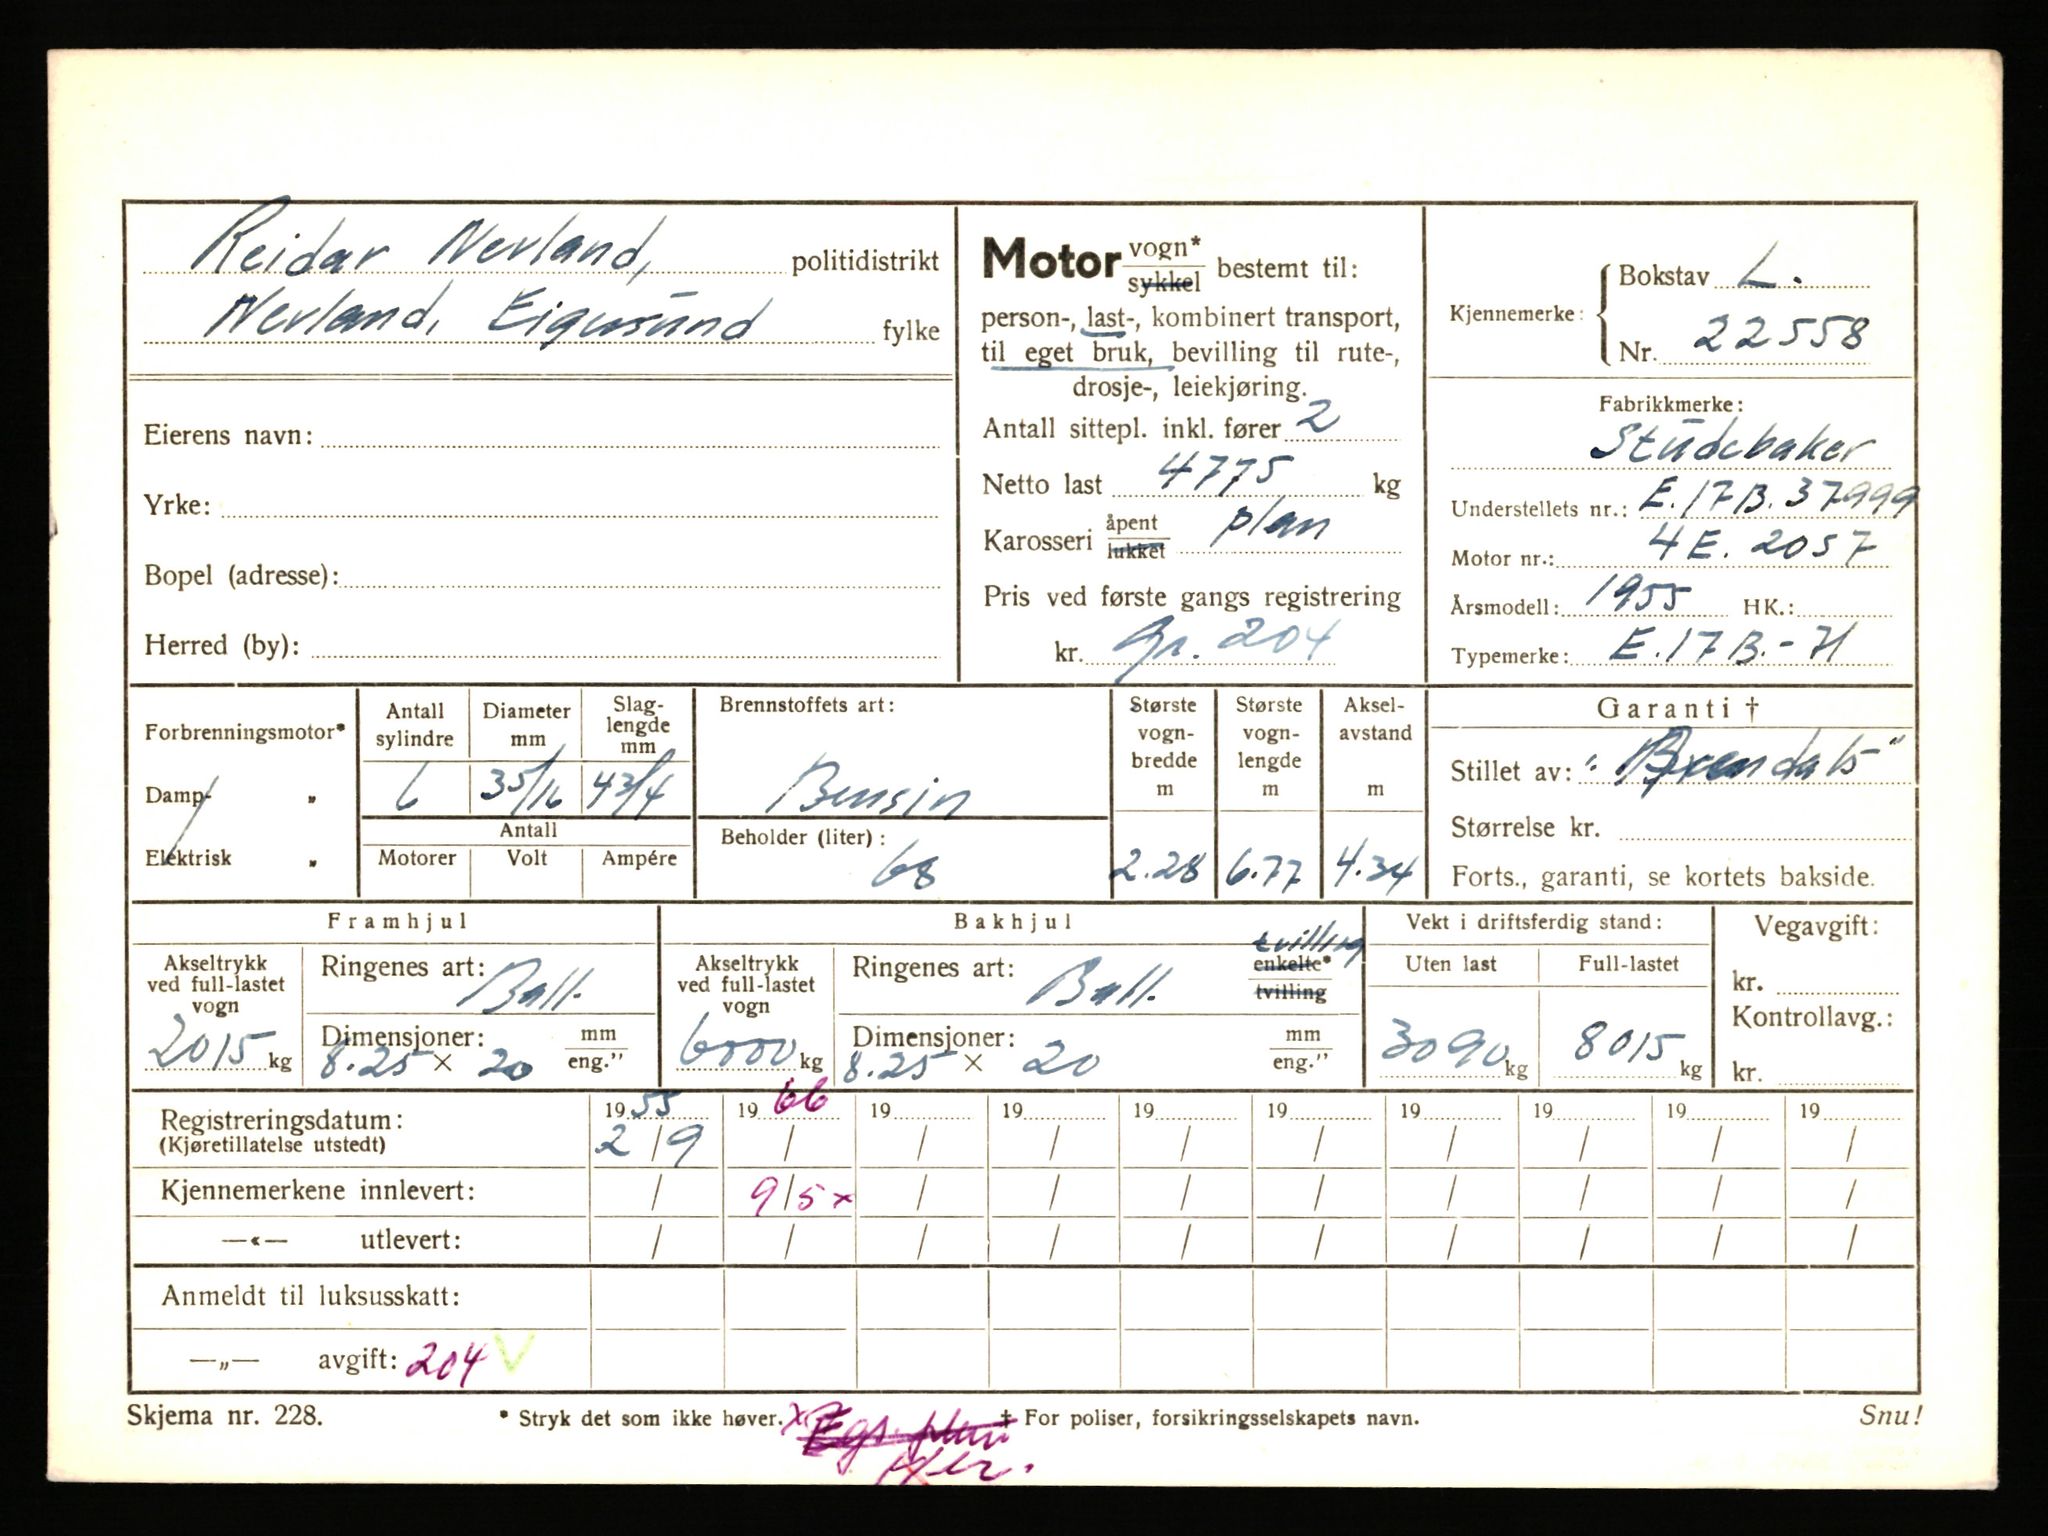 Reidar Nevland, politidistrikt
Nevland, Eigersund fylke
Eierens navn:
Yrke:
Bopel (adresse):
Herred (by):
Motor vogn* sykkel bestemt til:
person-, last-, kombinert transport,
til eget bruk, bevilling til rute-,
drosje-, leiekjøring.
Antall sittepl. inkl. fører 2
Netto last 4775 kg
Karosseri åpent lukket plan
Pris ved første gangs registrering
kr. Gr. 204
Kjennemerke: Bokstav L.
Nr. 22558
Fabrikkmerke:
Studebaker
Understellets nr.: E.17B.37999
Motor nr.: 4E. 2057
Årsmodell: 1955 HK.:
Typemerke: E.17B.-71
Forbrenningsmotor*
Damp- „
Elektrisk „
Antall sylindre Diameter mm Slaglengde mm
6 35/16 43/4
Antall
Motorer Volt Ampére
Brennstoffets art:
Bensin
Beholder (liter):
68
Største vogn-bredde m Største vogn-lengde m Aksel-avstand m
2.28 6.77 4.34
Garanti †
Stillet av: "Brendals"
Størrelse kr.
Forts., garanti, se kortets bakside.
Framhjul
Akseltrykk ved full-lastet vogn
2015 kg
Ringenes art: Ball.
Dimensjoner: mm
8.25 × 20 eng."
Bakhjul
Akseltrykk ved full-lastet vogn
6000 kg
tvilling
Ringenes art: Ball. enkelte* tvilling
Dimensjoner: mm
8.25 × 20 eng."
Vekt i driftsferdig stand:
Uten last Full-lastet
3090 kg 8015 kg
Vegavgift:
kr.
Kontrollavg.:
kr.
Registreringsdatum: 19 55 19 66 19 19 19 19 19 19 19 19
(Kjøretillatelse utstedt) 2/9 / / / / / / / / /
Kjennemerkene innlevert: / 9/5 x / / / / / / / /
—«— utlevert: / / / / / / / / / /
Anmeldt til luksusskatt:
—„— avgift: 204 V
Skjema nr. 228. * Stryk det som ikke høver. x † For poliser, forsikringsselskapets navn. Snu!